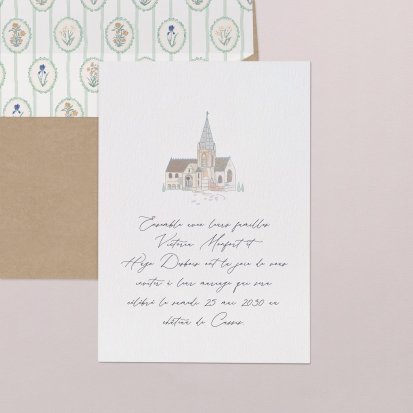 Ensemble avec leurs familles
Victoria Monfort et
Hugo Dubois ont la joie de vous
inviter à leur mariage qui sera
célébré le samedi 25 mai 2030 au
château de Cassis.